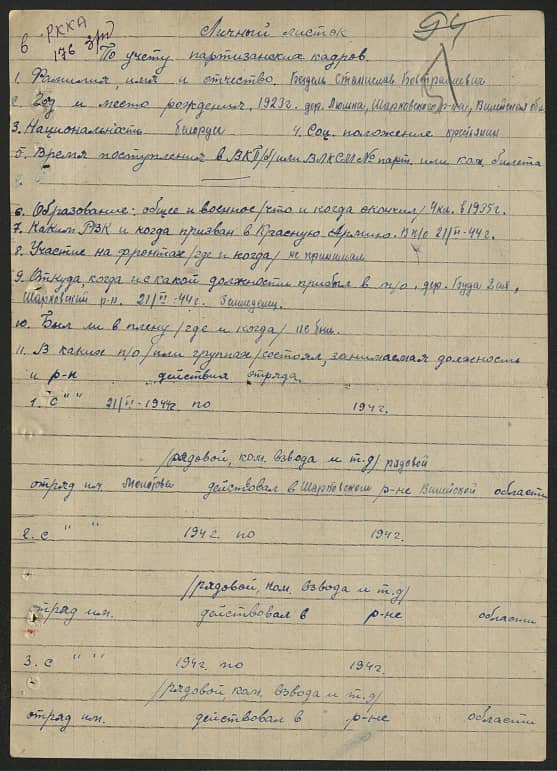 в РККА
176 зрп
94
Личный листок
По учету партизанских кадров.
1. Фамилия, имя и отчество. Станислав
2. Год и место рождения, 1923г. дер. Люшка, Шарковского р-на, Вилейская обл
3. Национальность белорус 4. Соц. положение крестьянин
5. Время поступления в ВКП/б/ или ВЛКСМ № парт. или кан. билета
6. Образование: общее и военное /что и когда окончил/ 4 кл. в 1935г.
7. Каким РВК и когда призван в Красную Армию. В п/о 21/II-44г.
8. Участие на фронтах /где и когда/ не принимал
9. Откуда, когда и с какой должности прибыл в п/о. дер. Гуда
Шарковский р-н. 21/II-44г.
10. Был ли в плену /где и когда/ не был.
11. В каких п/о /или группах/ состоял, занимаемая должность
и р-н действия отряда.
1. с " " 21/II-1944г. по 194 г.
/рядовой, ком. взвода и т.д/ рядовой
отряд им. Молотова действовал в Шарковском р-не Вилейской области
2. с " " 194 г. по 194 г.
/рядовой, ком. взвода и т.д/
отряд им. действовал в р-не области
3. с " " 194 г. по 194 г.
/рядовой ком. взвода и т.д/
отряд им. действовал в р-не области